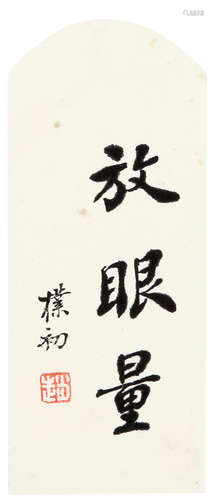 放眼量
樸初
趙